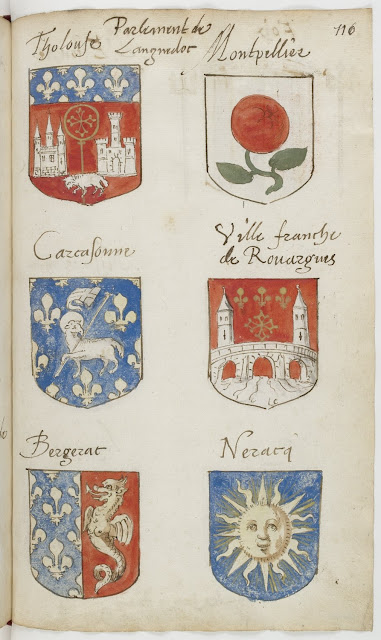 116
Parlement de
Languedoc
Tholouse
Montpellier
Carcasonne
Ville franche
de Rouargues
Bergerat
Neracq